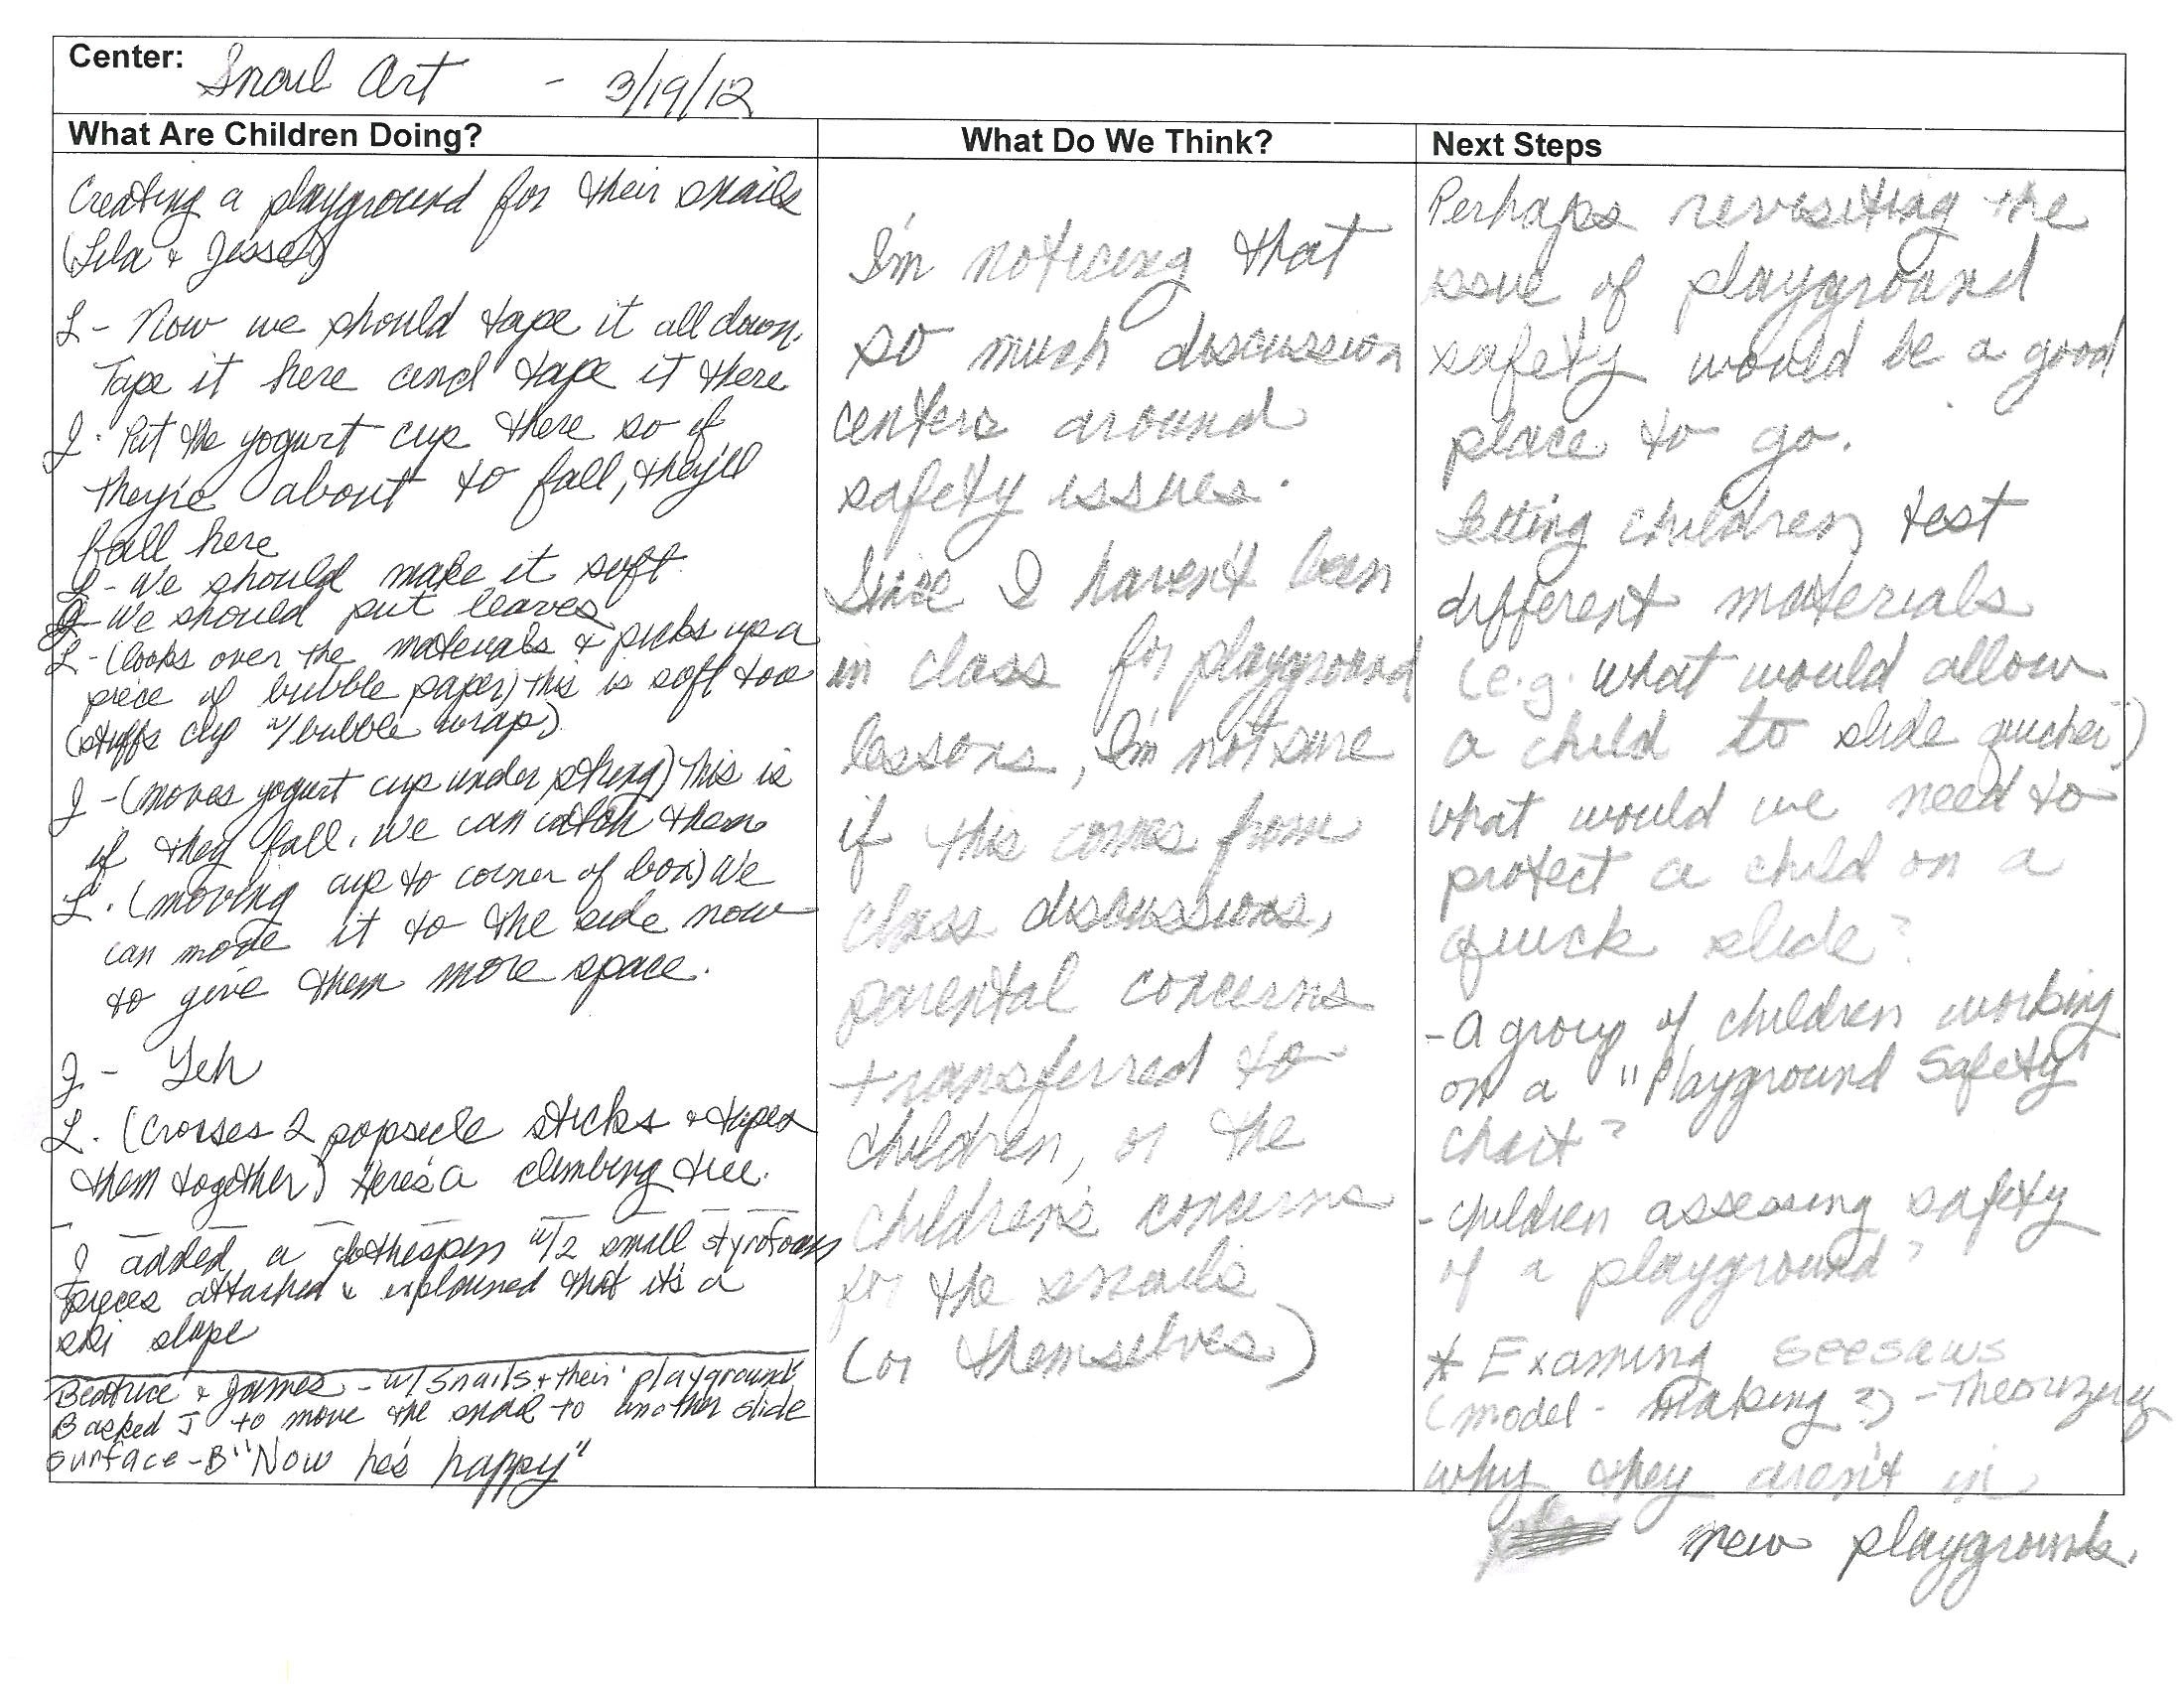 Center: Snail Art - 3/19/12
What Are Children Doing?
Creating a playground for their snails
(Lila + Jesse)
L - Now we should tape it all down.
Tape it here and tape it there
J. Put the yogurt cup there so if
they're about to fall, they'll
fall here
L - We should make it soft.
J - We should put leaves
L - (looks over the materials & picks up a
piece of bubble paper) this is soft too
(stuffs cup w/ bubble wrap).
J - (moves yogurt cup under string) This is
if they fall. We can catch them
L. (moving cup to corner of box) We
can move it to the side now
to give them more space.
J - Yeh
L. (Crosses 2 popsicle sticks & tapes
them together) Here's a climbing tree.
J added a clothespin w/2 small styrofoam
pieces attached & explained that it's a
ski slope
Beatrice & James - w/ snails & their playground
B asked J to move the snail to another slide
surface - B "Now he's happy"
What Do We Think?
I'm noticing that
so much discussion
centers around
safety issues.
Since I haven't been
in class for playground
lessons, I'm not sure
if this comes from
class discussions,
parental concerns
transferred to
children, or the
children's concerns
for the snails
(or themselves)
Next Steps
Perhaps revisiting the
issue of playground
safety would be a good
place to go.
Letting children test
different materials
(e.g. what would allow
a child to slide quicker)
what would we need to
protect a child on a
quick slide?
- A group of children working
on a "Playground Safety"
chart?
- children assessing safety
of a playground?
* Examing seesaws
(model - making?) - Theorizing
why they aren't in
new playgrounds.